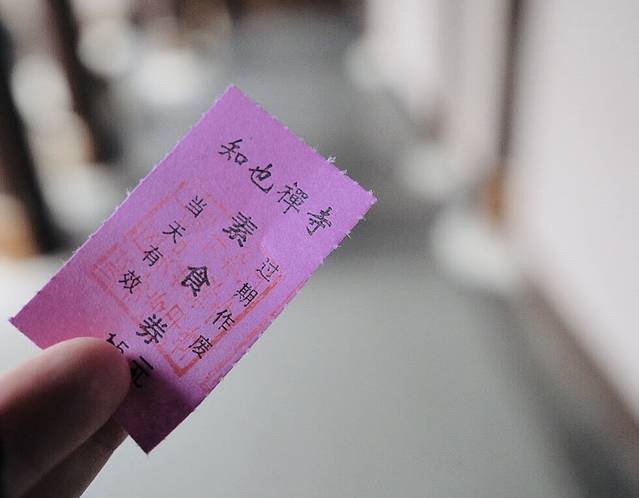 知也禪寺
过期作废
素食券
当天有效
15元